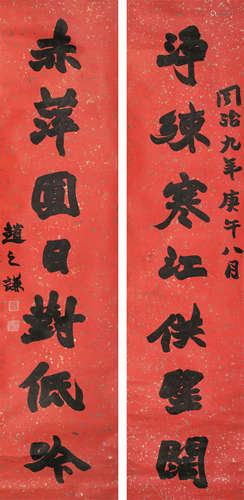 同治九年庚午八月
淨練寒江供朢闊
赤萍圓日對低吟
趙之謙